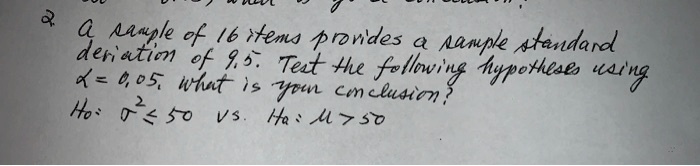 2. A sample of 16 items provides a sample standard
deviation of 9.5. Test the following hypotheses using
α = 0.05. What is your conclusion?
Ho: σ² ≤ 50 vs. Ha: M > 50